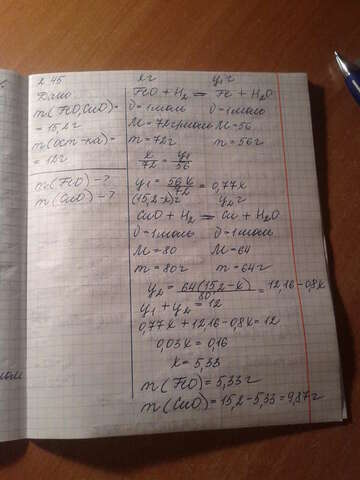 2.45
Дано
m(FeO,CuO)=
= 15,2г
m(ост-ка)=
= 12г
m(FeO) - ?
m(CuO) - ?
xг y₁г
FeO + H₂ = Fe + H₂O
υ=1моль υ=1моль
M=72г/моль M=56
m=72г m=56г
x/72 = y₁/56
y₁ = 56x/72 = 0,77x
(15,2-x)г y₂г
CuO + H₂ = Cu + H₂O
υ=1моль υ=1моль
M=80 M=64
m=80г m=64г
y₂ = 64(15,2-x)/80 = 12,16-0,8x
y₁ + y₂ = 12
0,77x + 12,16 - 0,8x = 12
0,03x = 0,16
x = 5,33
m(FeO) = 5,33г
m(CuO) = 15,2 - 5,33 = 9,87г